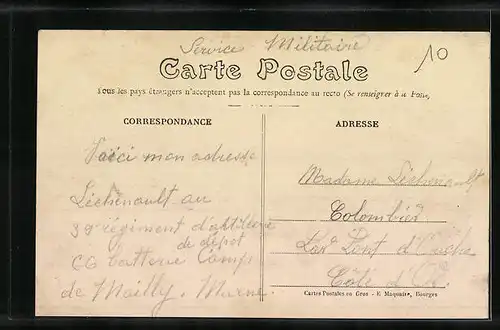 Service Militaire
10
Carte Postale
Tous les pays étrangers n'acceptent pas la correspondance au recto (Se renseigner à la Poste)
CORRESPONDANCE
Voici mon adresse
Léchenault au
39 régiment d'artillerie
de dépôt
66 batterie Camp
de Mailly. Marne.
ADRESSE
Madame Léchenault
Colombier
Par Pont d'Ouche
Côte d'Or
Cartes Postales en Gros - E. Maquaire, Bourges